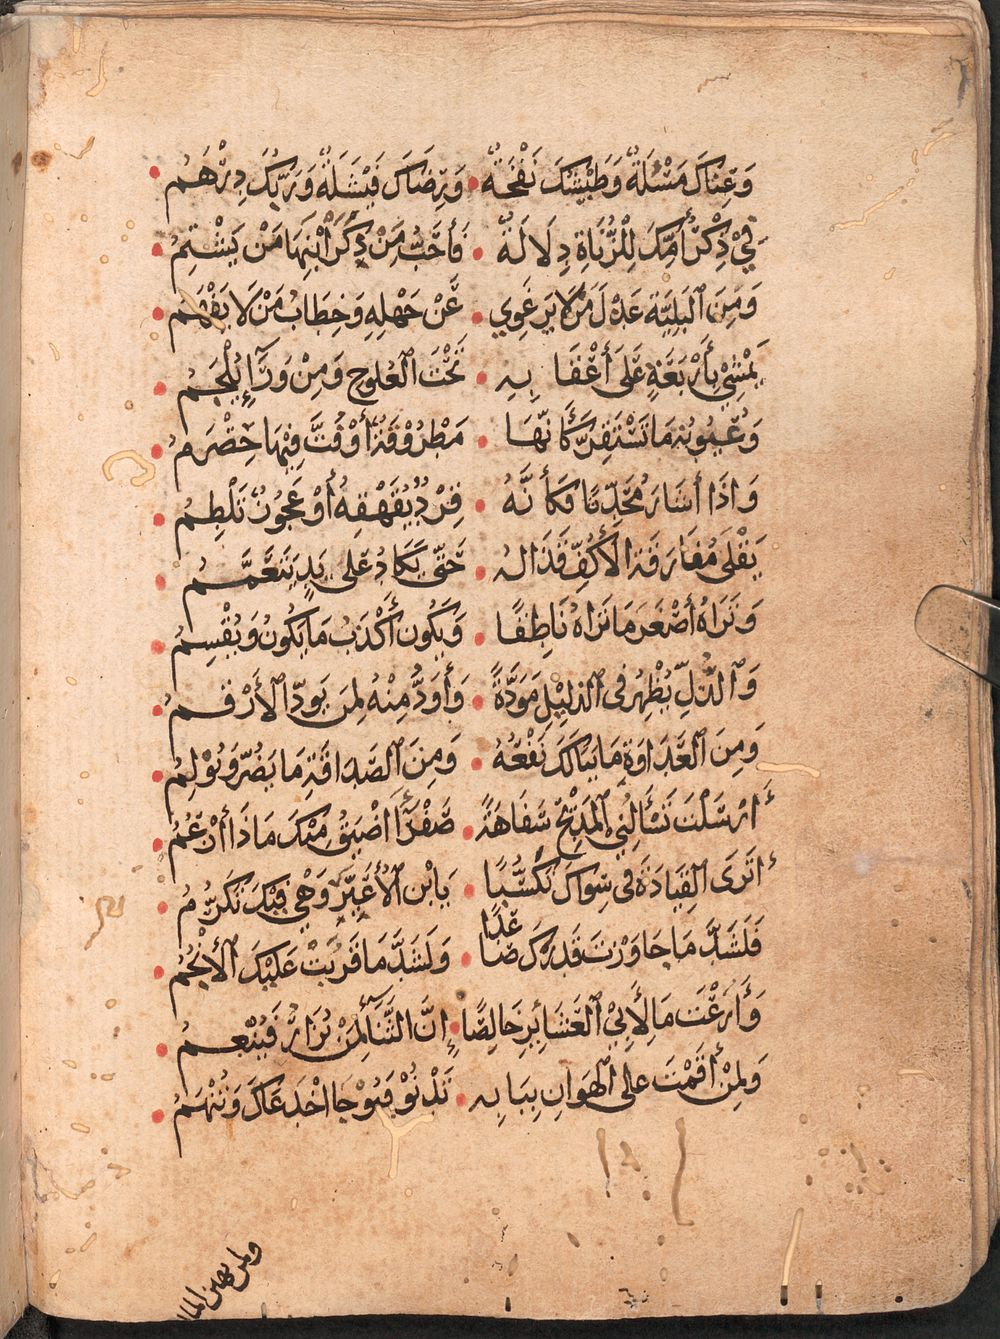 وَغِنَاكَ مَسْئَلَةٌ وَطَيْشُكَ نَفْخَةٌ • وَرِضَاكَ فَيْشَلَةٌ وَرَبُّكَ دِرْهَمُ •
فِيْ ذِكْرِ أُمِّكَ لِلزُّنَاةِ دِلَالَةٌ • فَأَحَبُّ مَنْ ذِكْرَ ابْنِهَا مَنْ يَشْتِمُ •
وَمِنَ ٱلْبَلِيَّةِ عَذْلُ مَنْ لَا يَرعَوِي • عَنْ جَهْلِهِ وَخِطَابُ مَنْ لَا يَفْهَم •
يَمْشِيْ بِأَرْبَعَةٍ عَلَى أَعْقَا بِهِ • تَحْتَ ٱلْعُلُوجِ وَمِنْ وَرَآءٍ يُلْجَمُ •
وَعُيُونه مَا تَسْتَقِرّ كَأَنَّهَا • مَطْرُوْفَةٌ أَوْ فُتَّ فِيْهَا حِصْرَمُ •
وَاذَا أَشَارَ مُحَدِّثًا فَكَأَنَّهُ • قِرْدٌ يُقَهْقِهُ أَوْ عَجُوْزٌ تَلْطِمُ •
يَقْلَى مُفَارَقَةَ الأَكُفِّ قَذَالُهُ • حَتَّى يَكَادَ عَلَى يَدٍ يَتَعَمَّمُ •
وَتَرَاهُ أَصْغَرَ مَا تَرَاهُ نَاطِقًا • وَيَكُون أَكْذَبُ مَا يَكُونُ وَيُقْسِمُ •
وَٱلذّلّ يُظْهِرُ فِى ٱلذلِيْلِ مَوَدَّةً • وَأَوَدُّ مِنْهُ لِمَن يَودّ الأَرْقَمُ •
وَمِنَ ٱلْعَدَاوَةِ مَا يَنَالَكَ نَفْعُهُ • وَمِنَ ٱلصَّدَاقَةِ مَا يَضُرّ وَيُوْلِمُ •
أَرْسَلْتَ تَسْأَلُنِي ٱلْمَدِيْحَ سَفَاهَةً • صَفْرَآءُ اضْيَقُ مِنْكَ مَاذَا أَزْعُمُ •
أَتَرَى القِيَادَةَ فى سِوَاكَ تَكَسُّبًا • يَا بْنَ الأُعَيِّرِ وَهْيَ فِيْكَ تَكَرُّمُ •
فَلَشَدَّ مَا جَاوَزْتَ قَدْرَكَ صَاعِدًا • وَلَشَدَّ مَا قَرُبَتْ عَلَيْكَ ٱلأَنْجُمُ •
وَأَرَغْتَ مَا لِأَبِيْ ٱلعَشَائِرِ خَالِصًا • إِنَّ الثَّنَآءَ لِمَنْ يُزَارُ فَيُنْعِمُ •
وَلِمَنْ أَقَمْتَ عَلى ٱلْهَوَانِ بِبَابِهِ • تَدْنُوْ فَيُوْجَا اخْدَعَاكَ وَتُنْهَمُ •
ولمن يهين الما